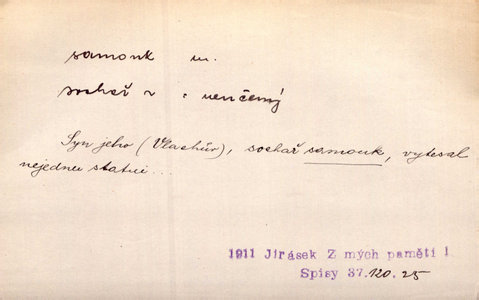 samouk m.
sochař neučený
Syn jeho (Vlachův), sochař samouk, vytesal
nejednu statui...
1911 Jirásek Z mých pamětí 1
Spisy 37.120.25